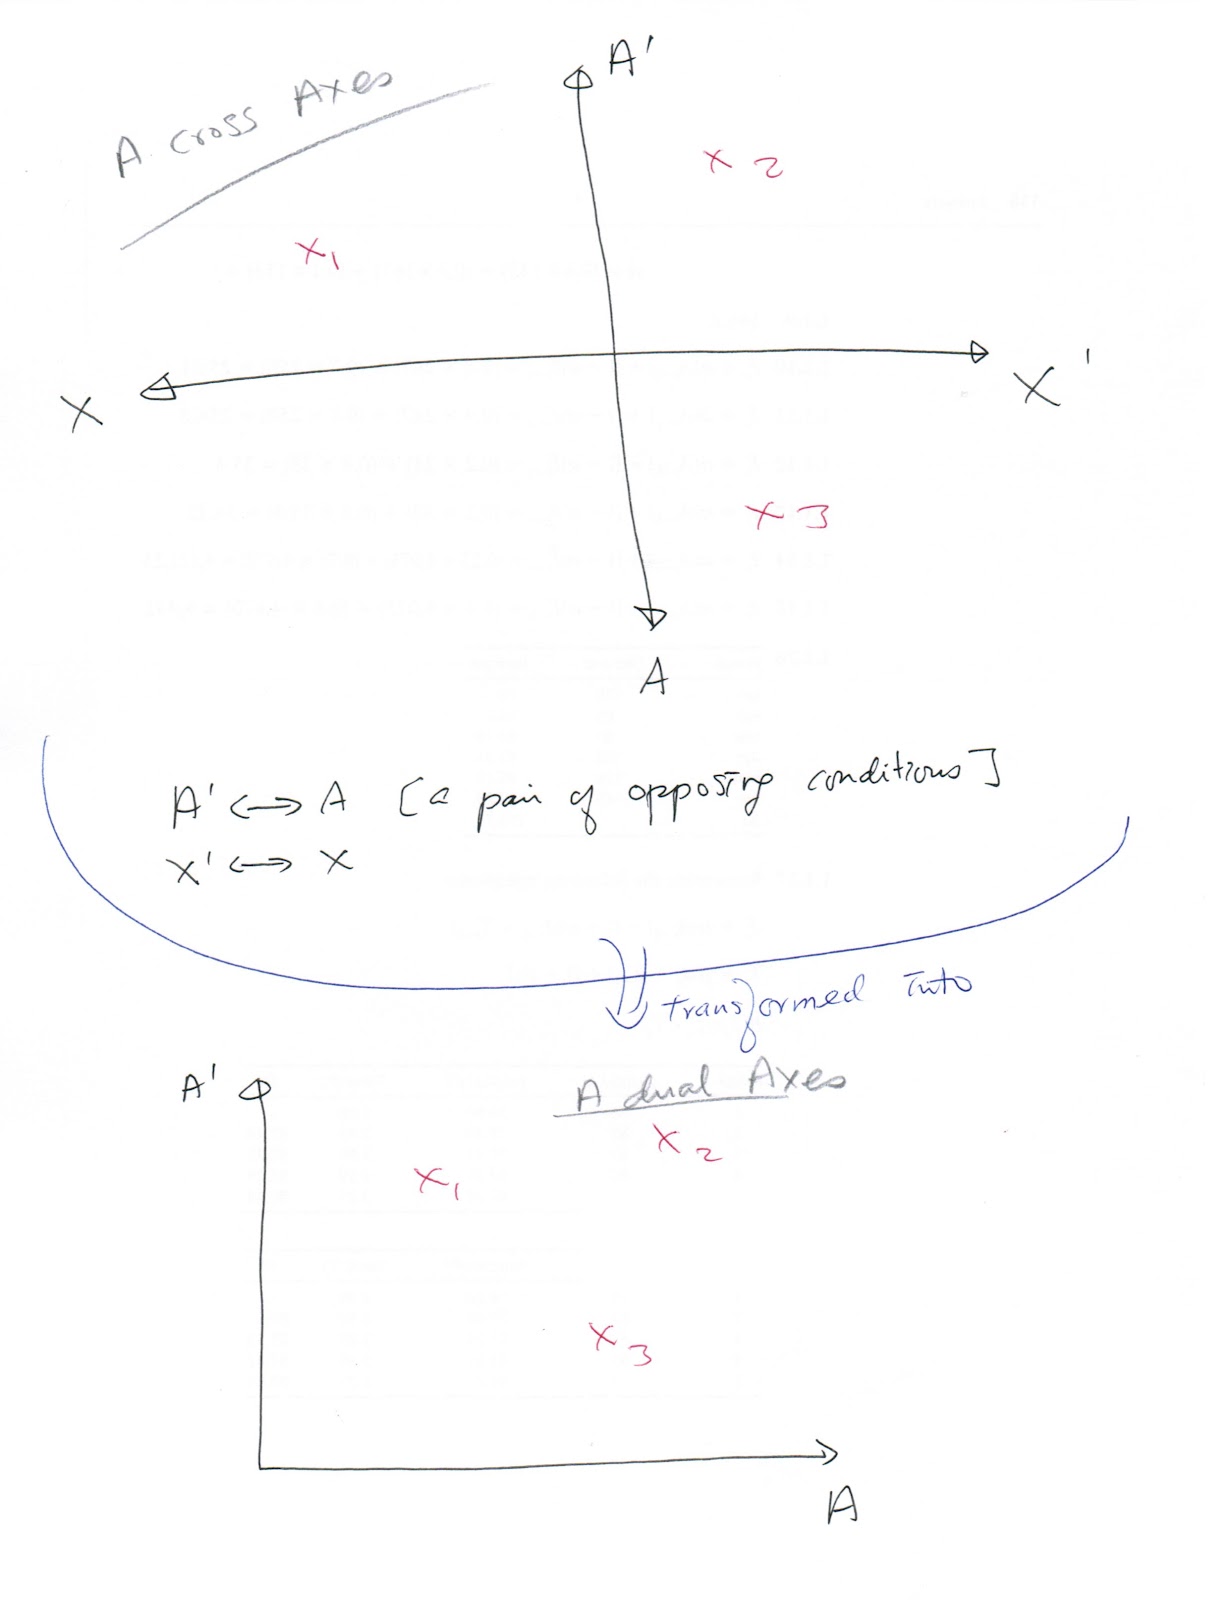 A cross Axes
A'
x 2
x1
X
X'
x 3
A
A' ↔ A [a pair of opposing conditions]
X' ↔ X
transformed into
A'
A dual Axes
x 2
x1
x 3
A